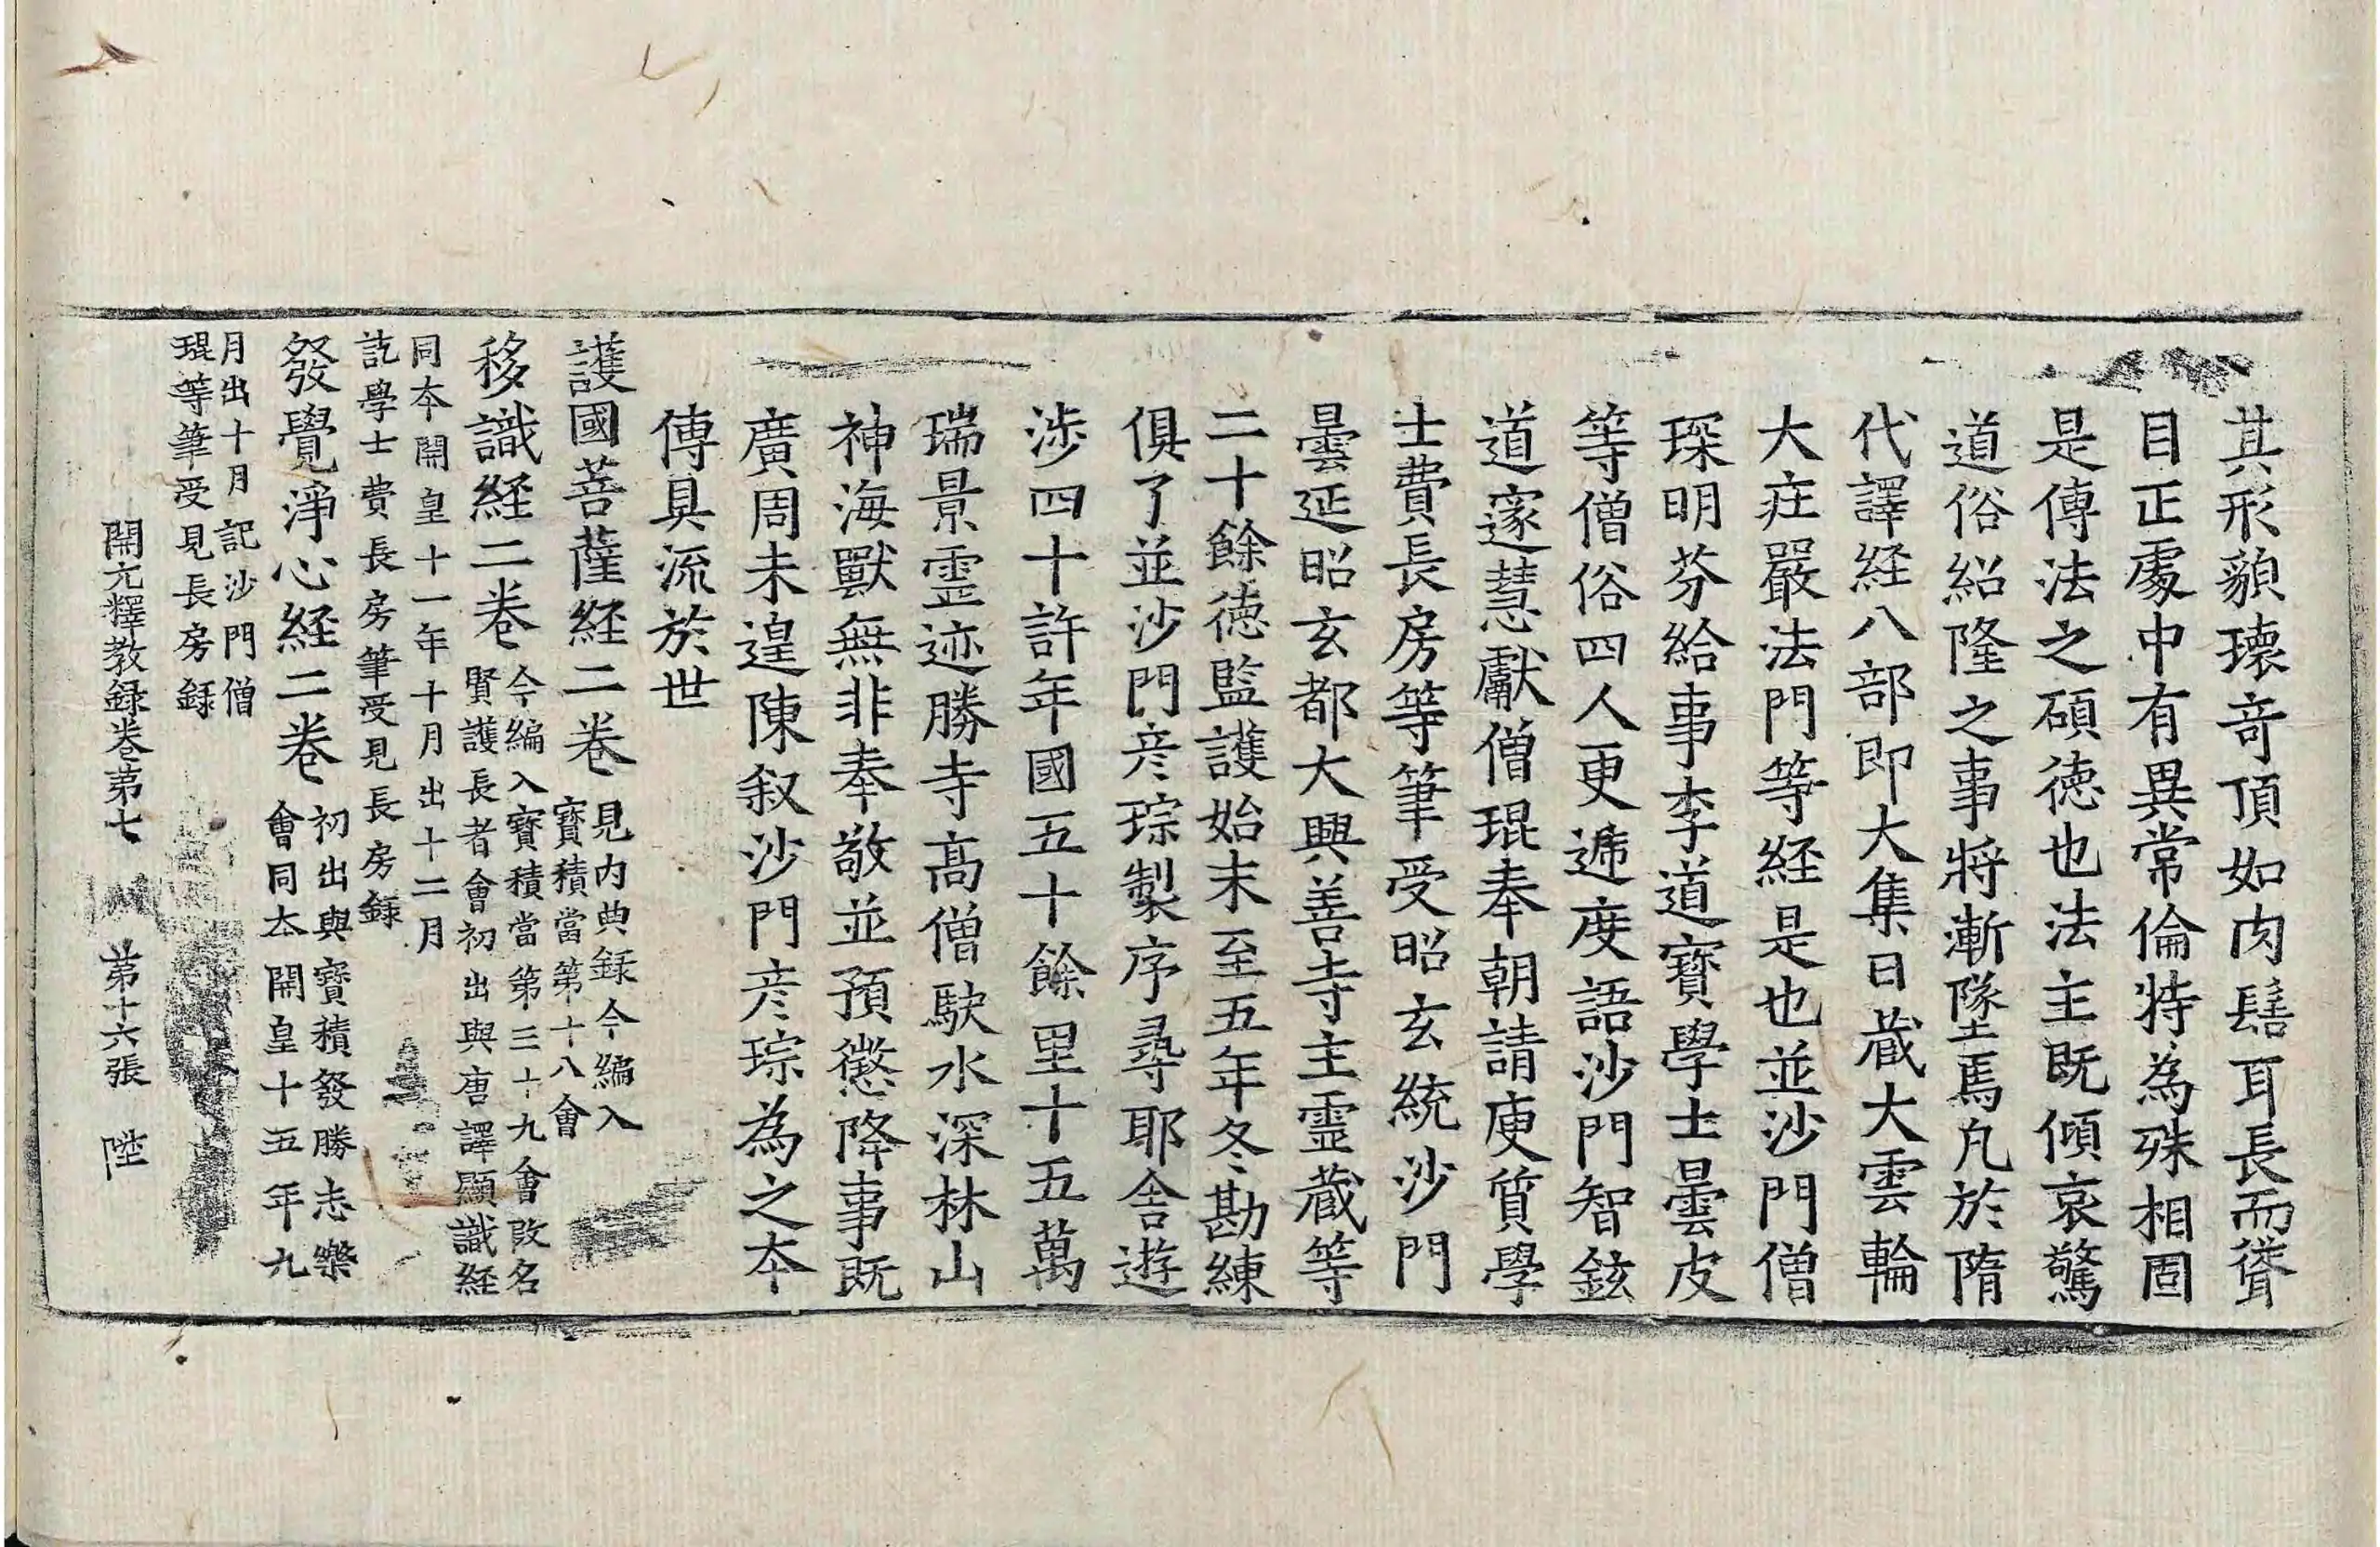 其形貌瓌奇頂如肉髻耳長而聳
目正處中有異常倫特為殊相固
是傳法之碩徳也法主既傾哀驚
道俗紹隆之事將漸墜焉凡於隋
代譯経八部即大集日藏大雲輪
大庄嚴法門等経是也並沙門僧
琛明芬給事李道寶學士曇皮
等僧俗四人更遞度語沙門智鉉
道邃慧獻僧琨奉朝請庾質學
士費長房等筆受昭玄統沙門
曇延昭玄都大興善寺主靈蔵等
二十餘徳監護始末至五年冬勘練
俱了並沙門彦琮製序尋耶舍遊
涉四十許年國五十餘里十五萬
瑞景靈迹勝寺高僧駛水深林山
神海獸無非奉敬並預懲降事既
廣周未遑陳叙沙門彦琮為之本
傳具流於世
護國菩薩経二巻 見内典録今編入
寶積當第十八會
移識経二巻 今編入寶積當第三十九會改名
賢護長者會初出與唐譯顯識経
同本開皇十一年十月出十二月
訖學士費長房筆受見長房録
發覺淨心経二巻 初出與寶積發勝志樂
會同本開皇十五年九
月出十月記沙門僧
琨等筆受見長房録
開元釋教録巻第七 第十六張 陞